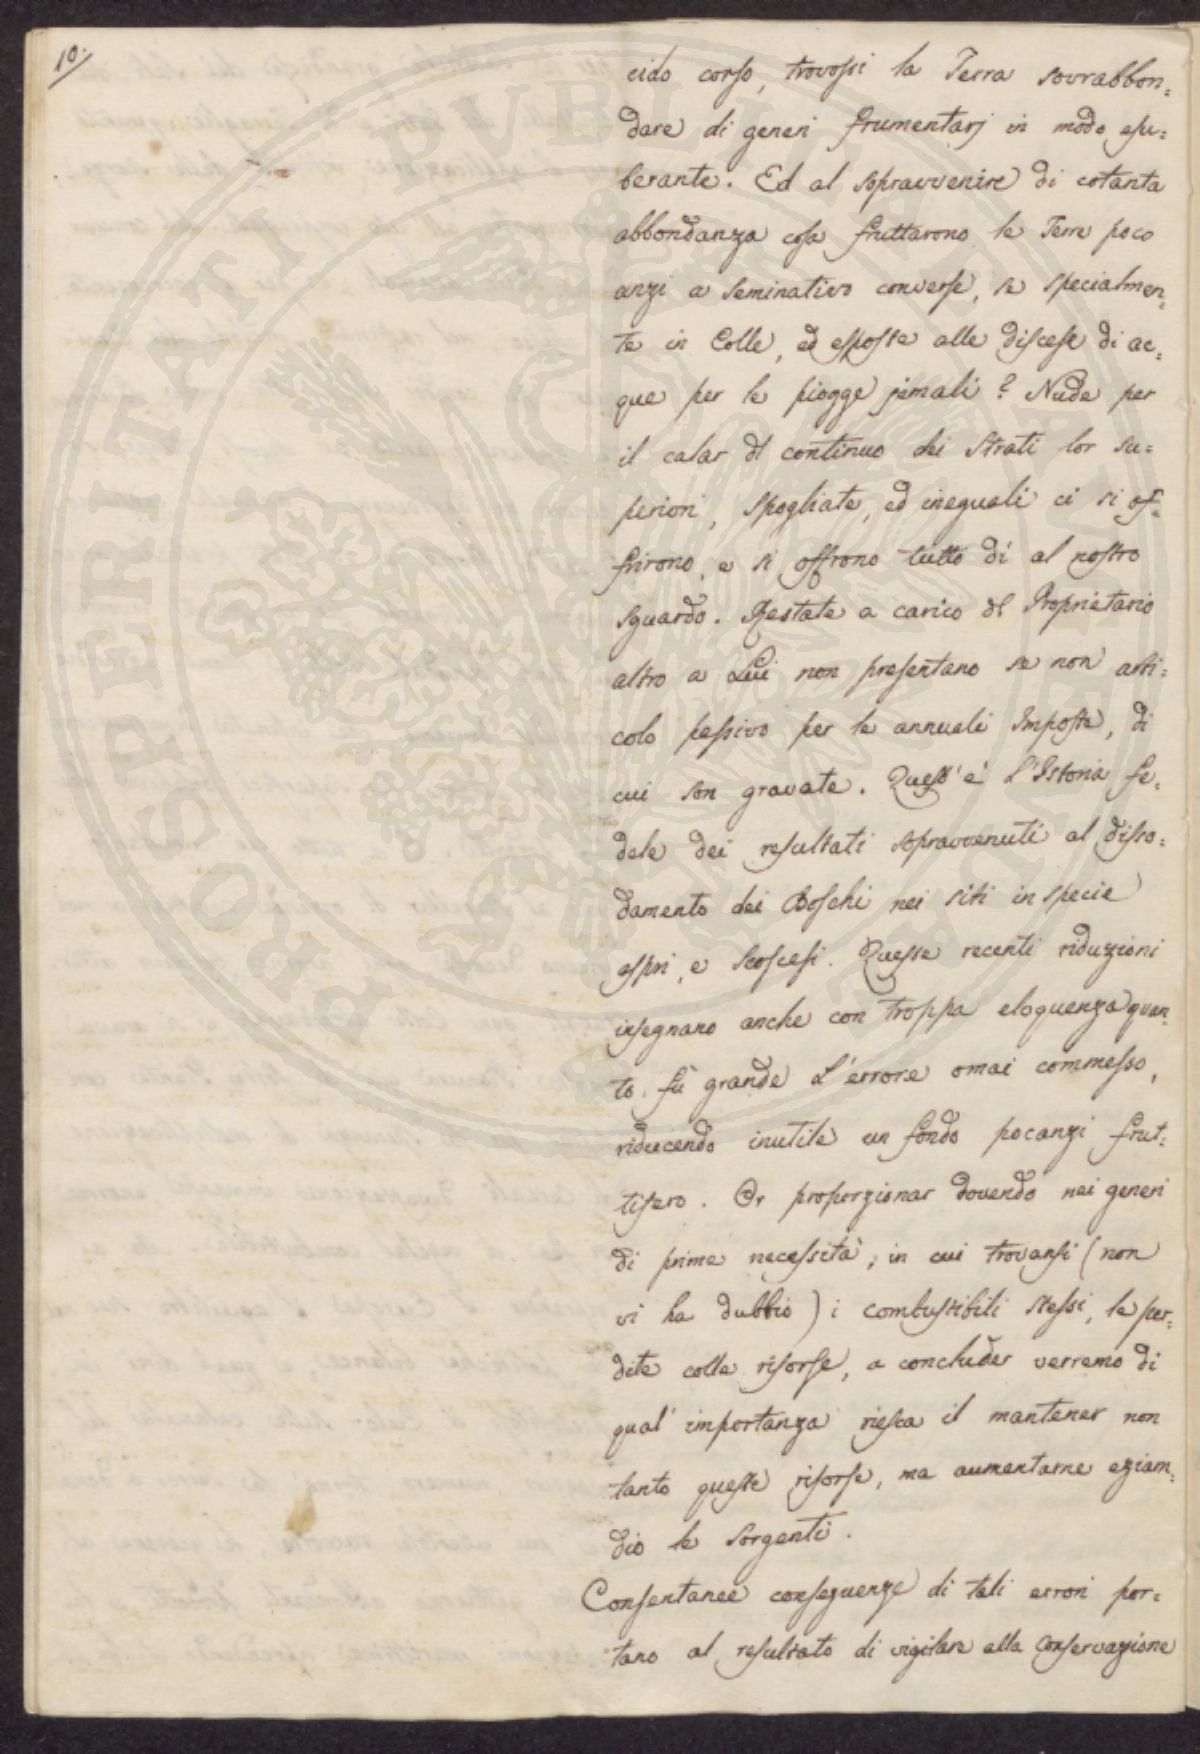 10.
cido corso, trovossi la Terra sovrabbon=
dare di generi frumentarj in modo esu=
berante. Ed al sopravvenire di cotanta
abbondanza cosa fruttarono le Terre poco
anzi a seminativo converse, se specialmen=
te in Colle, ed esposte alle discese di ac=
que per le piogge jemali? Nude per
il calar dl continuo dei Strati lor su=
periori, spogliate, ed ineguali ci si of=
frirono, e si offrono tutto dì al nostro
sguardo. Restate a carico dl Proprietario
altro a Lui non presentano se non arti=
colo passivo per le annuali Imposte, di
cui son gravate. Quest'è L'Istoria fe=
dele dei resultati sopravvenuti al disso=
damento dei Boschi nei siti in specie
aspri, e scoscesi. Queste recenti riduzioni
insegnano anche con troppa eloquenza quan=
to fù grande L'errore omai commesso,
riducendo inutile un fondo pocanzi frut=
tifero. Or proporzionar dovendo nei generi
di prima necessità, in cui trovansi (non
vi ha dubbio) i combustibili stessi, le per=
dite colle risorse, a concluder verremo di
qual' importanza riesca il mantener non
tanto queste risorse, ma aumentarne eziam=
dio le sorgenti.
Consentanee conseguenze di tali errori por=
tano al resultato di vigilare alla conservazione
PROSPERITATI PUBLICAE AUGENDAE